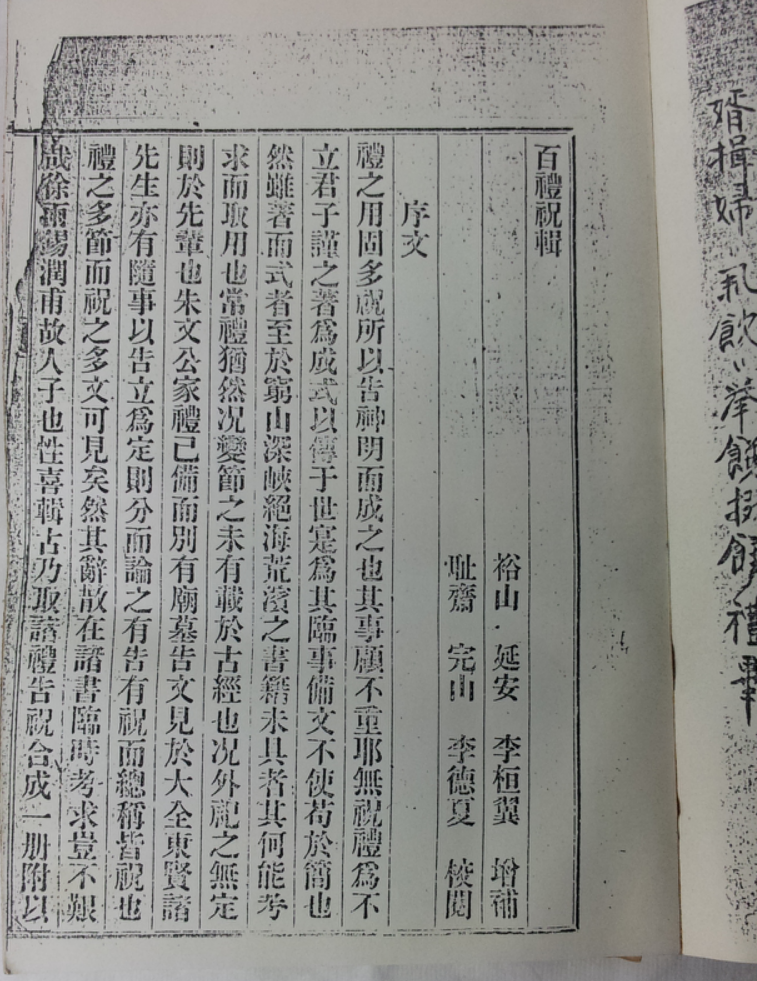 百禮祝輯
裕山 延安 李桓翼 增補
耻齋 完山 李德夏 校閱
序文
禮之用固多祝所以告神明而成之也其事顧不重耶無祝禮爲不
立君子謹之著爲成式以傳于世寔爲其臨事備文不使苟於簡也
然雖著而式者至於窮山深峽絕海荒濱之書籍未具者其何能考
求而取用也常禮猶然况變節之未有載於古經也况外祀之無定
則於先輩也朱文公家禮已備而別有廟墓告文見於大全東賢諸
先生亦有隨事以告立爲定則分而論之有告有祝而總稱皆祝也
禮之多節而祝之多文可見矣然其辭散在諸書臨時考求豈不艱
哉徐雨錫潤甫故人子也性喜輯古乃取諸禮告祝合成一册附以
婿揖婦 飮 擧饌 禮畢